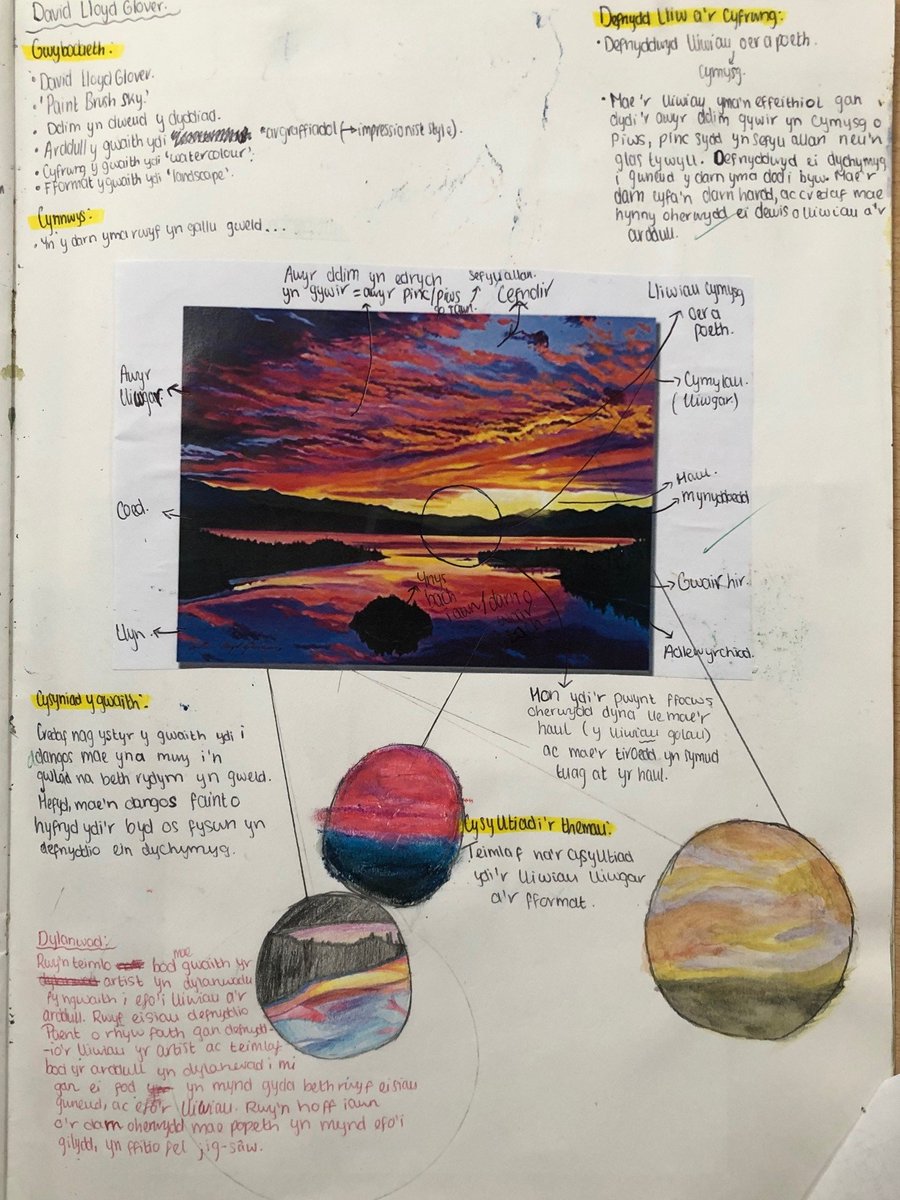 David Lloyd Glover.
Gwybodaeth:
• David Lloyd Glover.
• 'Paint Brush Sky.'
• Ddim yn dweud y dyddiad.
• Arddull y gwaith ydi *argraffiadol (→ impressionist style).
• Cyfrwng y gwaith ydi 'watercolour'.
• Fformat y gwaith ydi 'landscape'.
Cynnwys:
• Yn y darn yma rwyf yn gallu gweld...
Defnydd Lliw a'r Cyfrwng:
• Defnyddwyd lliwiau oer a poeth.
cymysg.
• Mae'r lliwiau yma'n effeithiol gan
dydi'r awyr ddim gywir yn cymysg o
piws, pinc sydd yn sefyll allan neu'n
glas tywyll. Defnyddwyd ei dychymyg
i gwneud y darn yma dod i byw. Mae'r
darn cyfa'n darn hardd, ac credaf mae
hynny oherwydd ei dewis o lliwiau a'r
arddull.
Awyr ddim yn edrych
yn gywir = awyr pinc/piws
go iawn.
sefyll allan.
Cefndir
Lliwiau cymysg
oer a
poeth.
Awyr
lliwgar.
Cymylau.
(lliwgar.)
Haul.
mynyddoedd
Coed.
Gwair hir.
Ynys
bach
iawn/darn
Llyn.
Adlewyrchiad.
Hon ydi'r pwynt ffocws
oherwydd dyna lle mae'r
haul (y lliwiau golau)
ac mae'r tiroedd yn symud
tuag at yr haul.
Cysyniad y gwaith:
Credaf nag ystyr y gwaith ydi i
ddangos mae yna mwy i'n
gwlad na beth rydym yn gweld.
Hefyd, mae'n dangos faint o
hyfryd ydi'r byd os fyswn yn
defnyddio ein dychymyg.
Cysylltiad i'r themau:
Teimlaf na'r cysylltiad
ydi'r lliwiau lliwgar
a'r fformat.
Dylanwad:
Rwy'n teimlo bod mae gwaith yr
artist yn dylanwadu
fy ngwaith i efo'i lliwiau a'r
arddull. Rwyf eisiau defnyddio
Paent o rhyw fath gan defnydd-
-io'r lliwiau yr artist ac teimlaf
bod yr arddull yn dylanwad i mi
gan ei fod yn mynd gyda beth rwyf eisiau
gwneud, ac efo'r lliwiau. Rwy'n hoff iawn
o'r darn oherwydd mae popeth yn mynd efo'i
gilydd, yn ffitio fel jig-sâw.